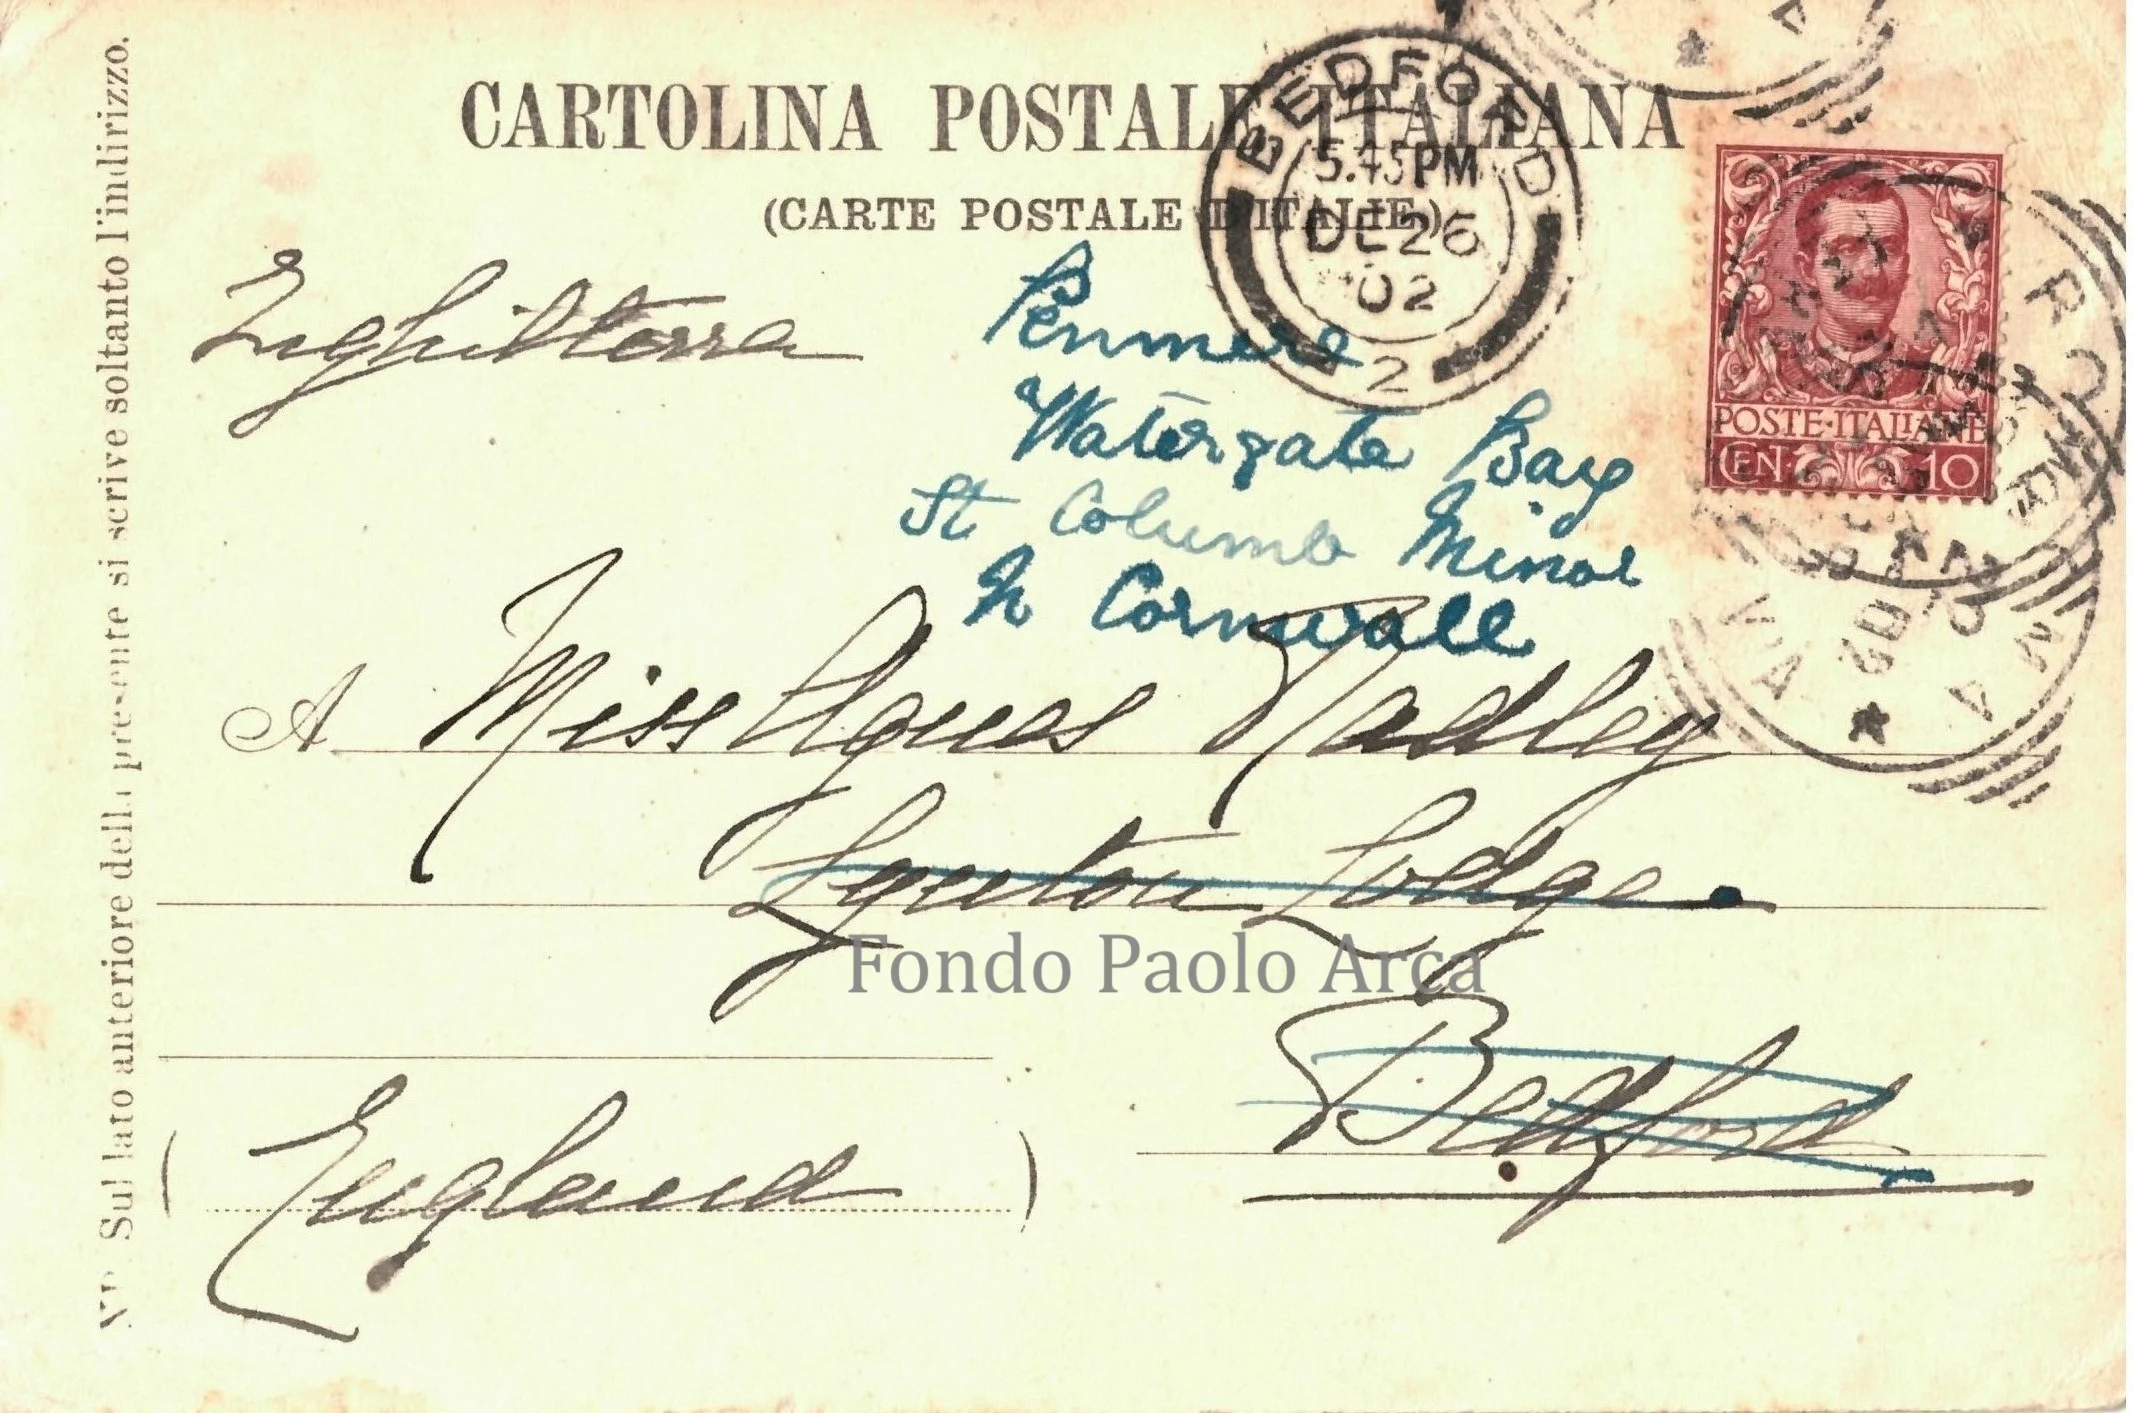 CARTOLINA POSTALE ITALIANA
(CARTE POSTALE D'ITALIE)
BEDFORD
5.45 PM
DE 26
02
2
POSTE·ITALIANE
CEN. 10
ROMA
02
Inghilterra
Penmere
Watergate Bay
St Columb Minor
N Cornwall
A Miss Agnes Radley
Lynton Lodge
Bedford
(England)
Fondo Paolo Arca
NB. Sul lato anteriore della presente si scrive soltanto l'indirizzo.